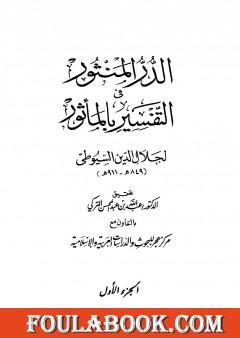 الدر المنثور
في
التفسير بالمأثور
لجلال الدين السيوطي
(٨٤٩هـ - ٩١١هـ)
تحقيق
الدكتور عبد الله بن عبد المحسن التركي
بالتعاون مع
مركز هجر للبحوث والدراسات العربية والإسلامية
الجزء الأول
FOULABOOK.COM